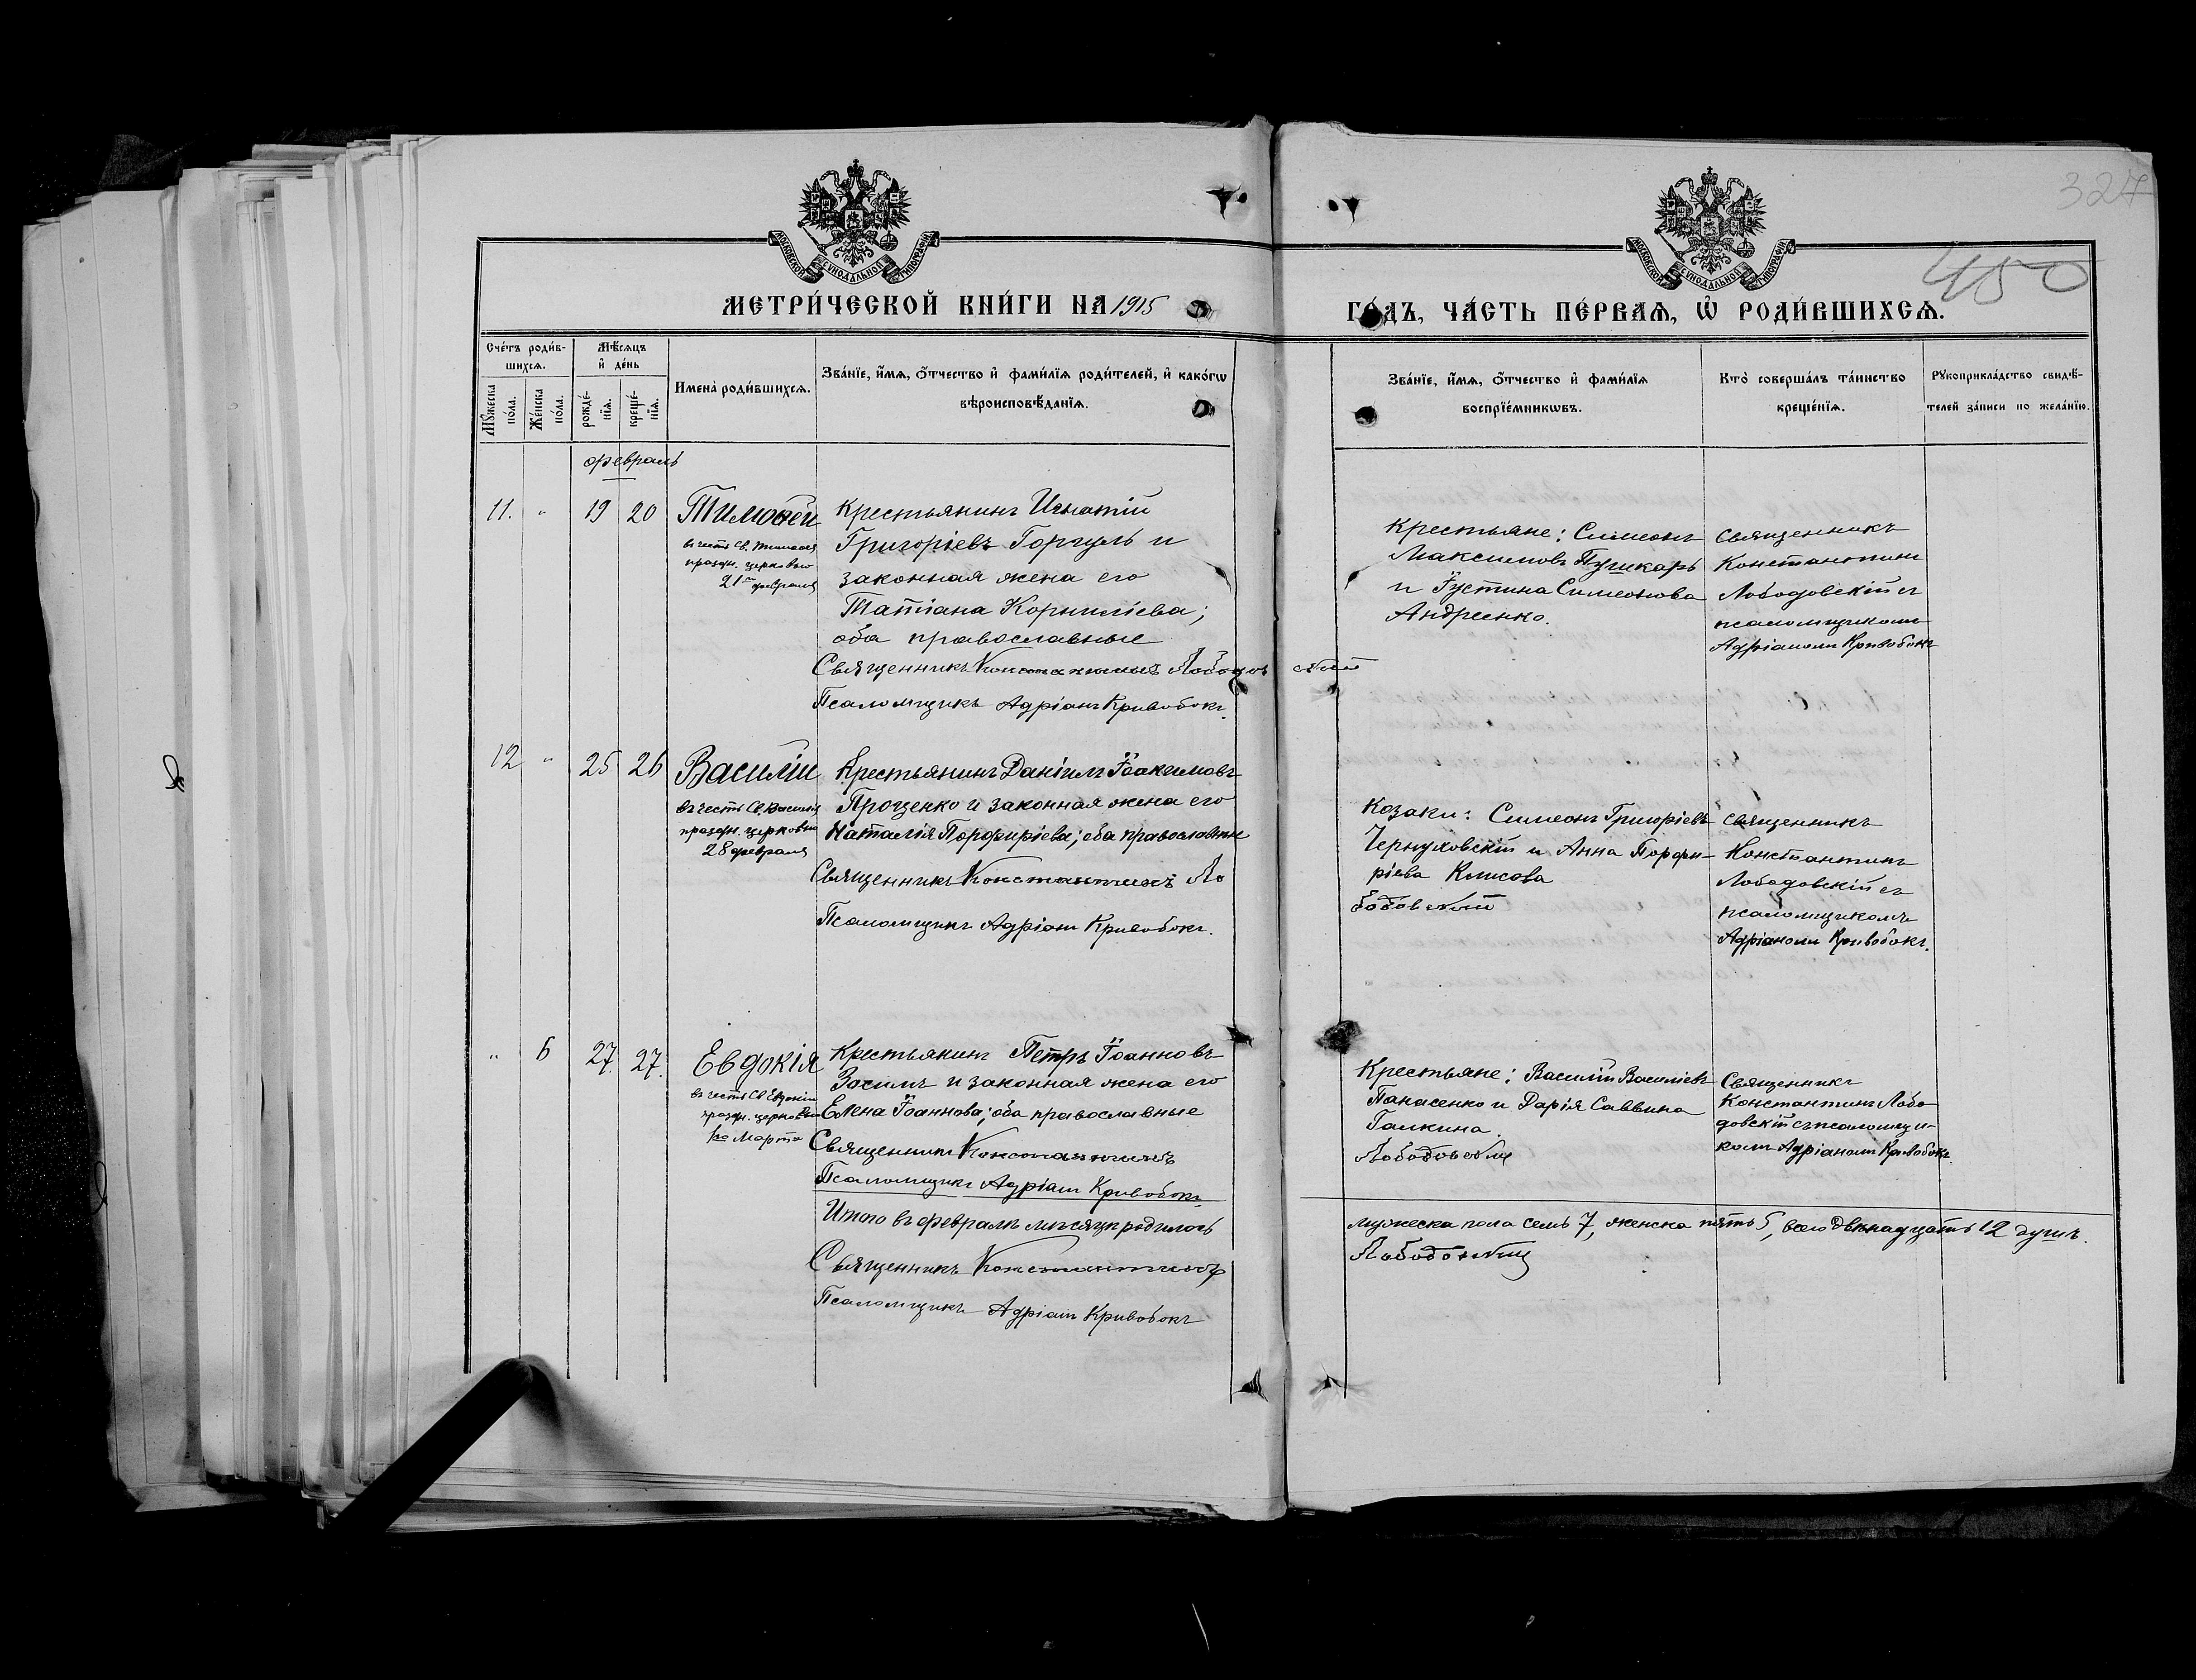 327
450
МОСКОВСКОЙ СѴНОДАЛЬНОЙ ТИПОГРАФІИ
МОСКОВСКОЙ СѴНОДАЛЬНОЙ ТИПОГРАФІИ
МЕТРИ́ЧЕСКОЙ КНИ́ГИ НА 1915
ГО́ДЪ, ЧА́СТЬ ПЕ́РВАѦ, Ѡ҆ РОДИ́ВШИХСѦ.
Сче́тъ роди́в-
шихсѧ.
Мꙋ́жеска по́ла.
Же́нска по́ла.
Мѣ́сѧцъ
и҆ де́нь
рожде́-
нїѧ.
креще́-
нїѧ.
Имена̀ роди́вшихсѧ.
Зва́нїе, и҆́мѧ, ѻ҆́тчество и҆ фами́лїѧ роди́телей, и҆ како́гѡ
вѣроисповѣ́данїѧ.
Зва́нїе, и҆́мѧ, ѻ҆́тчество и҆ фами́лїѧ
воспрїе́мникѡвъ.
Кто̀ соверша́лъ та́инство
креще́нїѧ.
Рꙋкоприкла́дство свидѣ́-
телей за́писи по жела́нїю.
февраль
11. " 19 20 Тимоѳей
въ честь Св. Тимоѳея
праздн. церковью
21го февраля
Крестьянинъ Игнатій
Григоріевъ Горгуль и
законная жена его
Татіана Корниліева;
оба православные
Священникъ Константинъ Лободовскій
Псаломщикъ Адріанъ Кривобокъ.
Крестьяне: Симеонъ
Максимовъ Пушкарь
и Іустина Симеонова
Андреенко.
Священникъ
Константинъ
Лободовскій съ
псаломщикомъ
Адріаномъ Кривобокъ
12 " 25 26 Василій
въ честь Св. Василія
праздн. церковью
28 февраля
Крестьянинъ Даніилъ Іоакимовъ
Проценко и законная жена его
Наталія Порфиріева; оба православные
Священникъ Константинъ Ло
Псаломщикъ Адріанъ Кривобокъ.
Козаки: Симеонъ Григоріевъ
Чернуховскій и Анна Порфи-
ріева Клисова
бодовскій
Священникъ
Константинъ
Лободовскій съ
псаломщикомъ
Адріаномъ Кривобокъ.
" 6 27. 27. Евдокія
въ честь Св Евдокіи
праздн. церковью
1го Марта
Крестьянинъ Петръ Іоанновъ
Зосимъ и законная жена его
Елена Іоаннова; оба православные
Священникъ Константинъ
Псаломщикъ Адріанъ Кривобокъ
Крестьяне: Василій Василіевъ
Панасенко и Дарія Саввина
Галкина.
Лободовскій
Священникъ
Константинъ Лобо-
довскій съ псаломщи-
комъ Адріаномъ Кривобокъ.
Итого въ февралѣ мѣсяцѣ родилось
мужеска пола семь 7, женска пять 5, всего двѣнадцать 12 душъ.
Священникъ Константинъ
Лободовскій
Псаломщикъ Адріанъ Кривобокъ